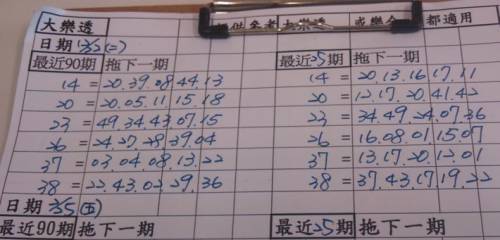 大樂透 供參考大樂透 或樂合 都適用
日期 2/5(二)
最近90期 拖下一期 最近25期 拖下一期
14 = 20.39.08.44.13 14 = 20.13.16.17.11
20 = 20.05.11.15.18 20 = 12.17.20.41.42
23 = 49.34.43.07.15 23 = 34.49.24.07.36
26 = 24.27.28.39.04 26 = 16.08.01.15.07
37 = 03.04.08.13.22 37 = 13.17.20.12.01
38 = 22.43.02.29.36 38 = 37.43.17.19.22
日期 2/5(五)
最近90期 拖下一期 最近25期 拖下一期